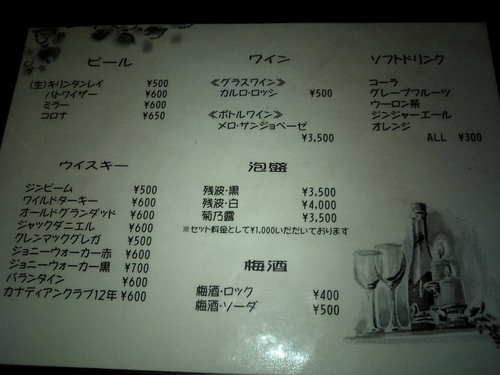 ビール
(生)キリンタンレイ ¥500
バトワイザー ¥600
ミラー ¥600
コロナ ¥650
ワイン
≪グラスワイン≫
カルロ・ロッシ ¥500
≪ボトルワイン≫
メロ・サンジョベーゼ
¥3,500
ソフトドリンク
コーラ
グレープフルーツ
ウーロン茶
ジンジャーエール
オレンジ
ALL ¥300
ウイスキー
ジンビーム ¥500
ワイルドターキー ¥600
オールドグランダッド ¥600
ジャックダニエル ¥600
クレンマックグレガ ¥500
ジョニーウォーカー赤 ¥600
ジョニーウォーカー黒 ¥700
バランタイン ¥600
カナディアンクラブ12年 ¥600
泡盛
残波・黒 ¥3,500
残波・白 ¥4,000
菊乃露 ¥3,500
※セット料金として¥1,000いただいております
梅酒
梅酒・ロック ¥400
梅酒・ソーダ ¥500